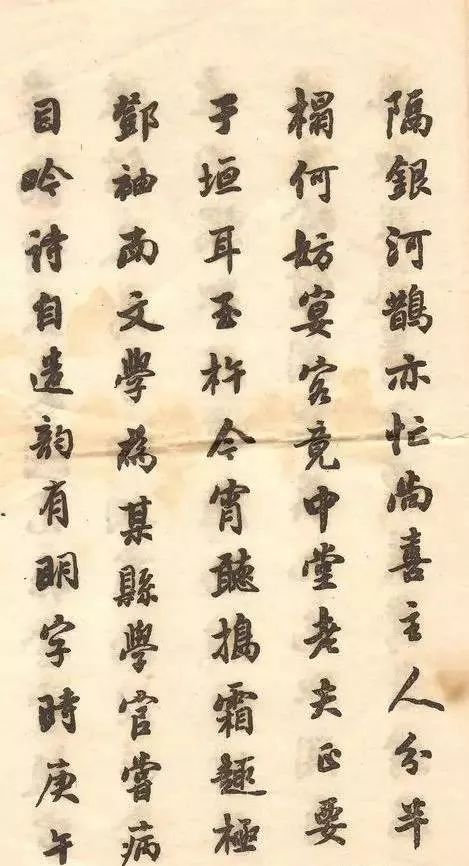 隔銀河鵲亦忙尚喜主人分半
榻何妨宴客竟中堂老夫正要
于垣耳玉杵今宵聽搗霜趣極
鄧袖南文學為某縣學官嘗病
目吟诗自遣韵有明字時庚午